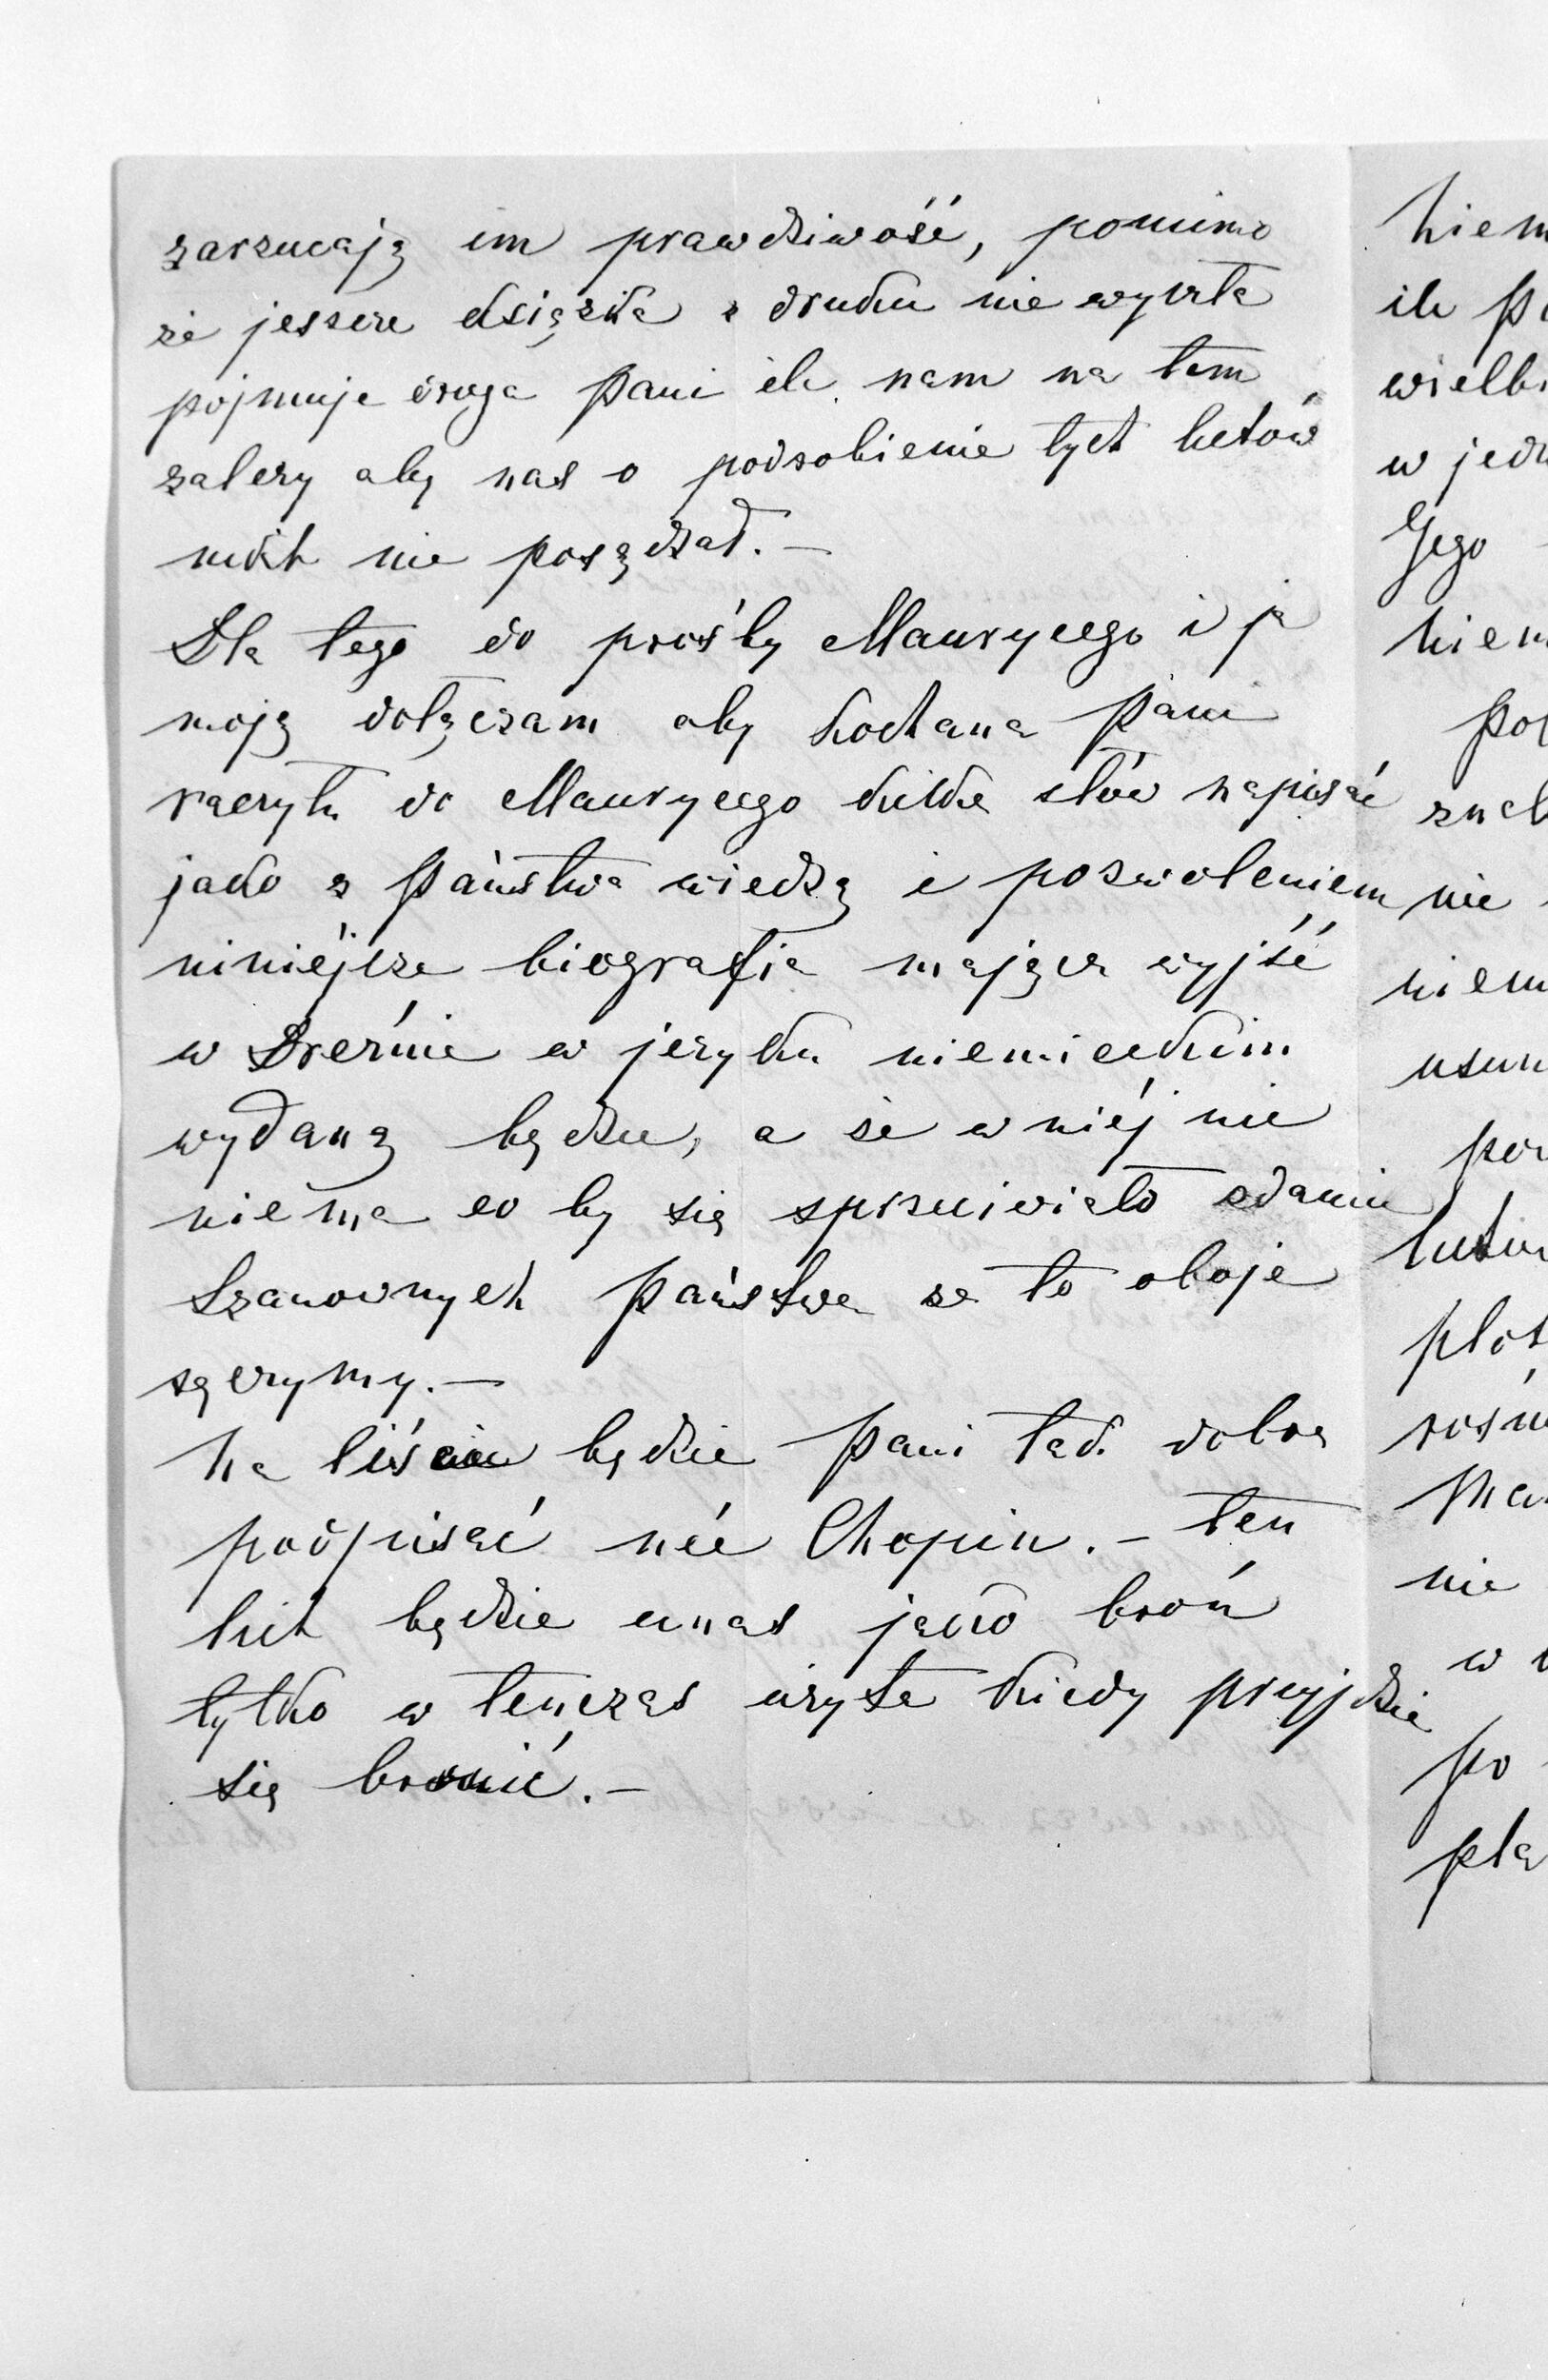 zarzucają im prawdziwość, pomimo
że jeszcze książka z druku nie wyszła
pojmuje droga Pani ile nam na tem
zależy aby nas o podrobienie tych listów
nikt nie posądzał. —
Dla tego do prośby Maurycego i ja
moją dołączam aby kochana Pani
raczyła do Maurycego kilka słów napisać
jako z Państwa wiedzą i pozwoleniem
niniéjsza biografia mająca wyjść
w Dreźnie w języku niemieckim
wydaną będzie, a że w niéj nic
niema co by się sprzeciwiało zdaniu
Szanownych Państwa za to oboje
ręczymy. —
Na liście będzie Pani łas. dobrą
podpisać née Chopin. — Ten
list będzie u nas jako broń
tylko w tenczas użyta kiedy przyjdzie
się bronić. —
niem
ile
w
Jego
niem
nie
niem
usun
nie
w
po